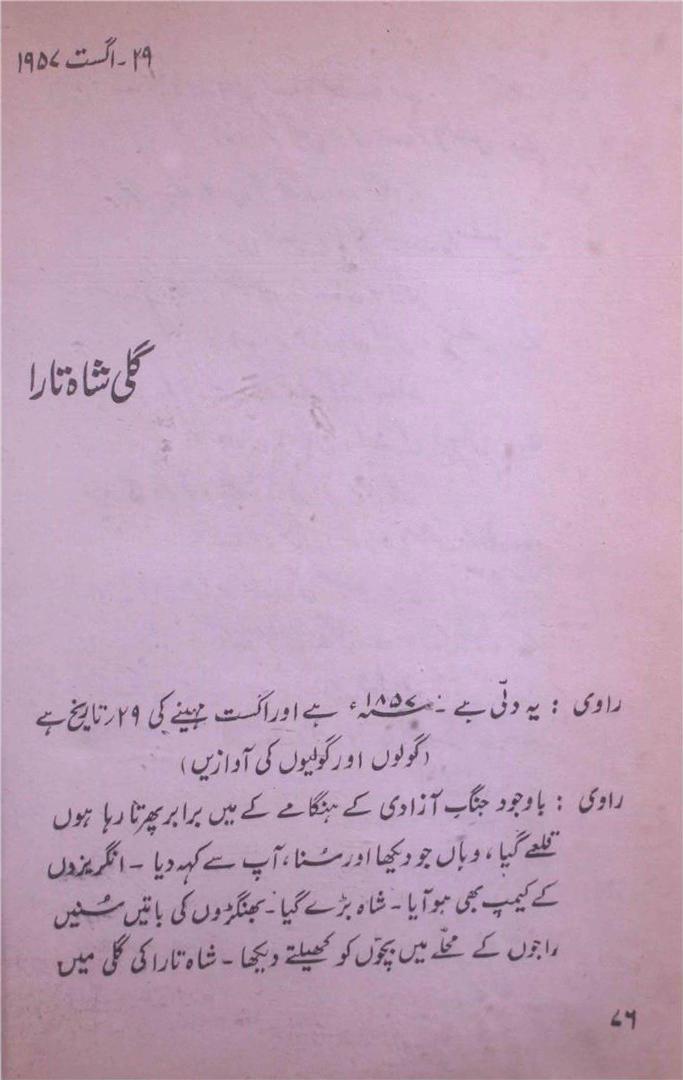 ۲۹ - اگست ۱۹۵۷
گلی شاہ تارا
راوی : یہ دلّی ہے - ۱۸۵۷ء ہے اور اگست مہینے کی ۲۹ر تاریخ ہے
(گولوں اور گولیوں کی آوازیں)
راوی : باوجود جنگِ آزادی کے ہنگامے کے میں برابر پھرتا رہا ہوں
قلعے گیا، وہاں جو دیکھا اور سُنا، آپ سے کہہ دیا - انگریزوں
کے کیمپ بھی ہو آیا - شاہ بڑے گیا - بھنگڑوں کی باتیں سُنیں
راجوں کے محلّے میں بچّوں کو کھیلتے دیکھا - شاہ تارا کی گلی میں
۷۶